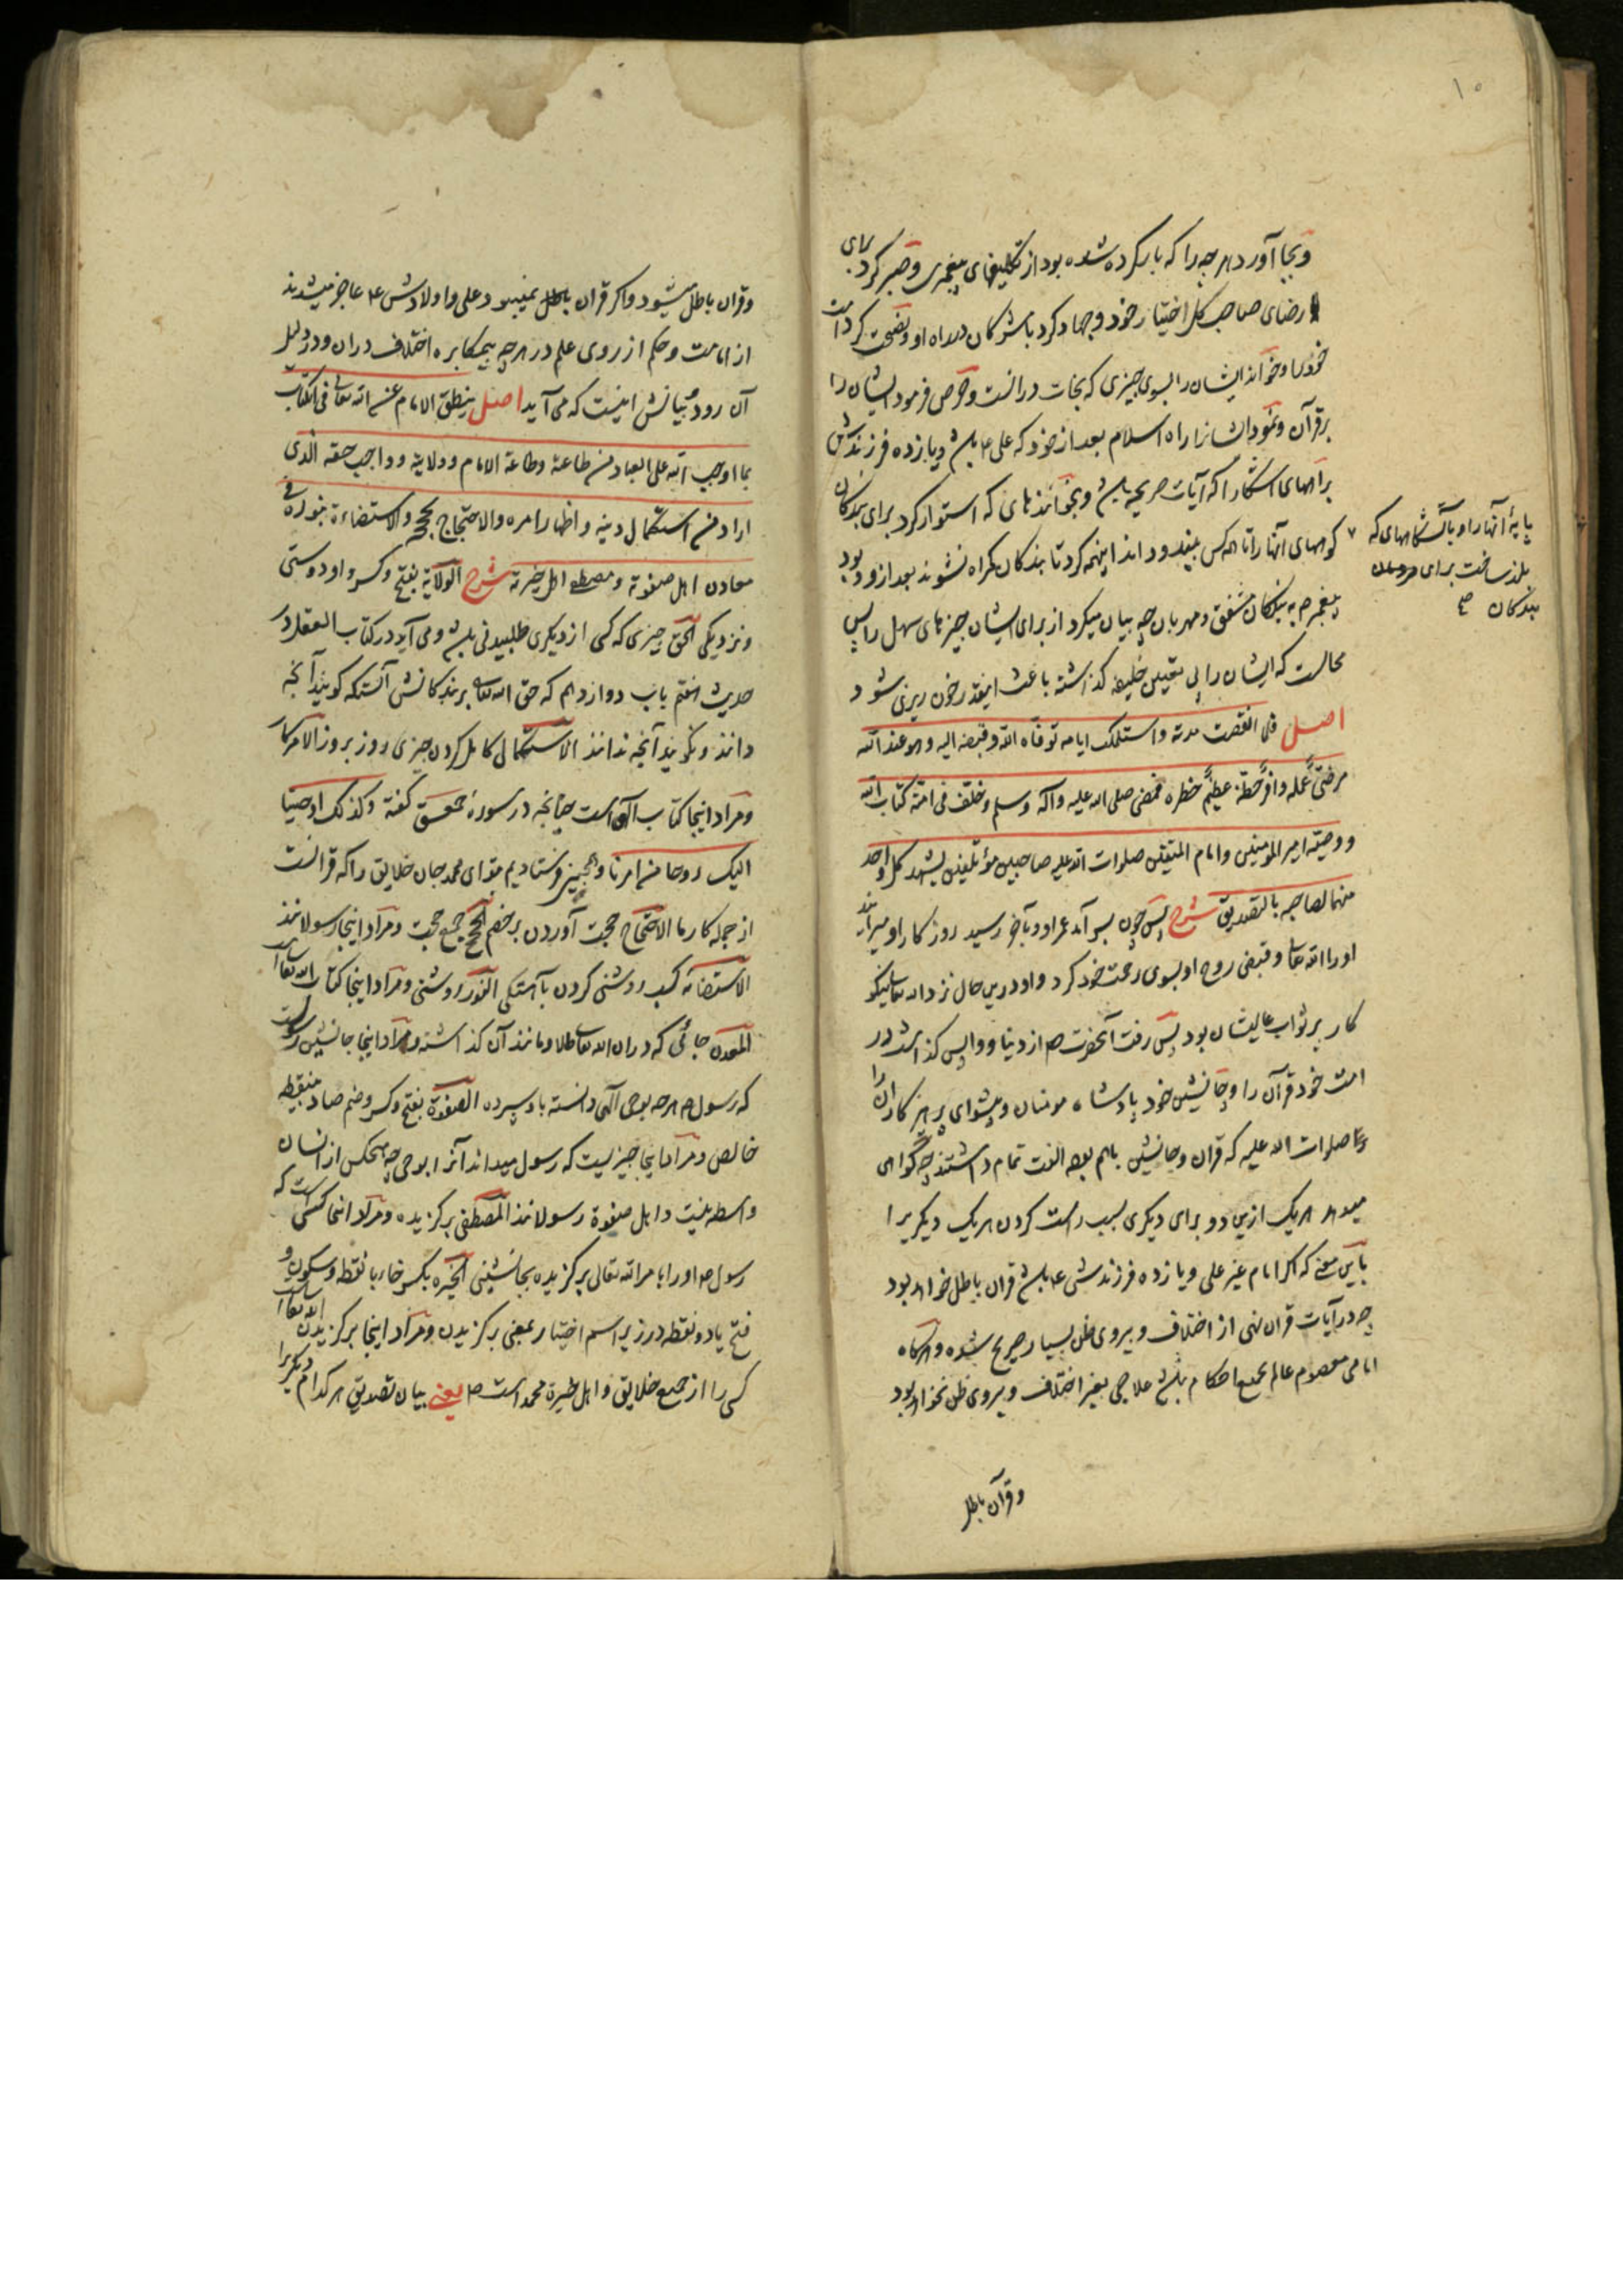 ۱۰
و بجا آورد هر چه را که بار کرده شده بود از تکلیفهای پیغمبری و صبر کرد برای
رضای صاحب کل اختیار خود و جهاد کرد با مشرکان در راه او و نصیحت کرد امت
خود را و خواند ایشان را بسوی چیزی که نجات در انست و حرص فرمود ایشان را
بر قرآن و نمود ایشانرا راه اسلام بعد از خود که علی ع باشد و یازده فرزندش
براههای اشکارا که آیات صریحه باشد و بخواندنهای که استوار کرد برای بندکان
کوههای آنها را تا هر کس بیند و داند اینهمه کرد تا بندکان کمراه نشوند بعد ازو و بود
پایهٔ آنها را و بآتشگاههای که
بلند ساخت برای
بندکان صح
پیغمبر ص به بندکان مشفق و مهربان چه بیان میکرد از برای ایشان چیزهای سهل را پس
محالست که ایشان را بی تعیین خلیفه کذاشته باعث اینقدر خون ریزی شود
اصل فلما انقضت مدته و استکملت ایامه توفاه الله و قبضه الیه و هو عند الله
مرضی عمله وافر حظه عظیم خطره فمضی صلی الله علیه و آله وسلم و خلف فی امته کتاب الله
و وصیه امیر المومنین و امام المتقین صلوات الله علیه صاحبین مؤتلفین یشهد کل واحد
منهما لصاحبه بالتصدیق شرح پس چون بسر آمد عمر او و بآخر رسید روزکار او میراند
او را الله تعالی و قبض روح او بسوی رحمت خود کرد و او درین حال نزد الله تعالی نیکو
کار پر ثواب عالیشان بود پس رفت آنحضرت ص از دنیا و واپس کذاشت در
امت خود قرآن را و جانشین خود پادشاه مومنان و پیشوای پرهیزکاران را
صلوات الله علیه که قران و جانشین باهم الفت تمام داشتند چه گواهی
میدهد هر یک ازین دو برای دیکری بسبب راست کردن هر یک دیکری را
باین معنی که اکر امام غیر علی و یازده فرزندش ع باشد قران باطل خواهد بود
چه در آیات قران نهی از اختلاف و پیروی ظن بسیار صریح شده و هرکاه
امامی معصوم عالم بجمیع احکام باشد علاجی بغیر اختلاف و پیروی ظن نخواهد بود
و قرآن باطل
و قران باطل میشود و اکر قران باطل نمیبود علی و اولادش ع عاجز میشدند
از امامت و حکم از روی علم در هر چه بیمکابره اختلاف دران و در دلیل
آن رود و بیانش اینست که می آید اصل ینطق الامام عن الله تعالی فی الکتاب
بما اوجب الله علی العباد من طاعته و طاعة الامام و ولایته و واجب حقه الذی
اراد من استکمال دینه و اظهار امره و الاحتجاج بحججه و الاستضاءة بنوره فی
معادن اهل صفوته و مصطفی اهل خیرته شرح الولایة بفتح و کسر واو دوستی
و نزدیکی الحق چیزی که کسی از دیکری طلبیدنی باشد و می آید در کتاب العقل در
حدیث هفتم باب دوازدهم که حق الله تعالی بر بندکانش آنستکه کویند آنچه
دانند و نکویند آنچه ندانند الاستکمال کامل کردن چیزی روز بروز الامر کار
و مراد اینجا کتاب است چنانچه در سورهٔ حمعسق کفته و کذلک اوحینا
الیک روحا من امرنا و همچنین فرستادیم بتو ای محمد جان خلایق را که قرانست
از جمله کار ما الاحتجاج حجت آوردن بر خصم الحجج جمع حجت و مراد اینجا رسولانند
الاستضاءة کسب روشنی کردن بآهستکی النور روشنی و مراد اینجا کتاب الله تعالی است
المعدن جائی که دران الله تعالی طلا و مانند آن کذاشته و مراد اینجا جانشین رسولست
که رسول ص هر چه بوحی الهی دانسته باو سپرده الصفوة بفتح و کسر و ضم صاد بینقطه
خالص و مراد اینجا چیزیست که رسول میداند آنرا بوحی چه هیچکس از انسان
واسطه نیست و اهل صفوة رسولانند المصطفی برکزیده و مراد اینجا کسی است که
رسول ص او را بامر الله تعالی برکزیده بجانشینی الخیره بکسر خاء با نقطه و سکون و
فتح یاء دو نقطه در زیر اسم اختیار بمعنی برکزیدن و مراد اینجا برکزیدن الله تعالی است
کسی را از جمیع خلایق و اهل خیرة محمد است ص یعنی بیان تصدیق هر کدام دیکریرا